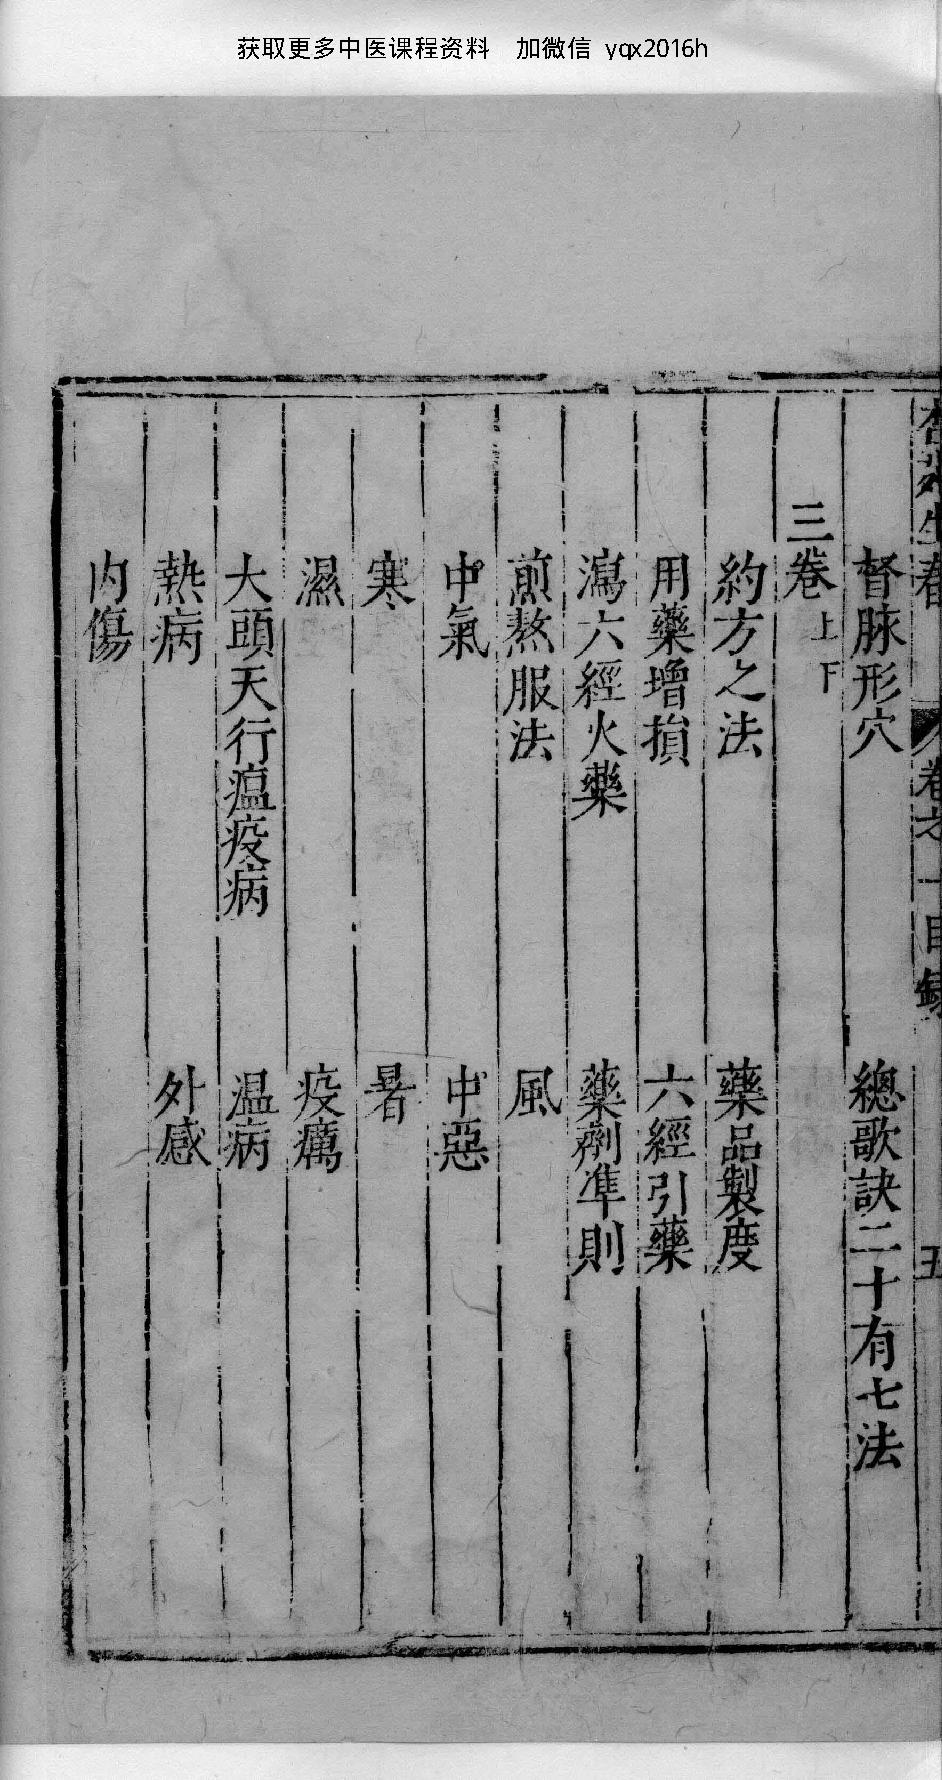 获取更多中医课程资料 加微信 yqx2016h
杏苑生春 卷之一目錄 五
督脉形穴 總歌訣二十有七法
三卷上下
約方之法 藥品製度
用藥增損 六經引藥
瀉六經火藥 藥劑準則
煎熬服法 風
中氣 中惡
寒 暑
濕 疫癘
大頭天行瘟疫病 温病
熱病 外感
内傷